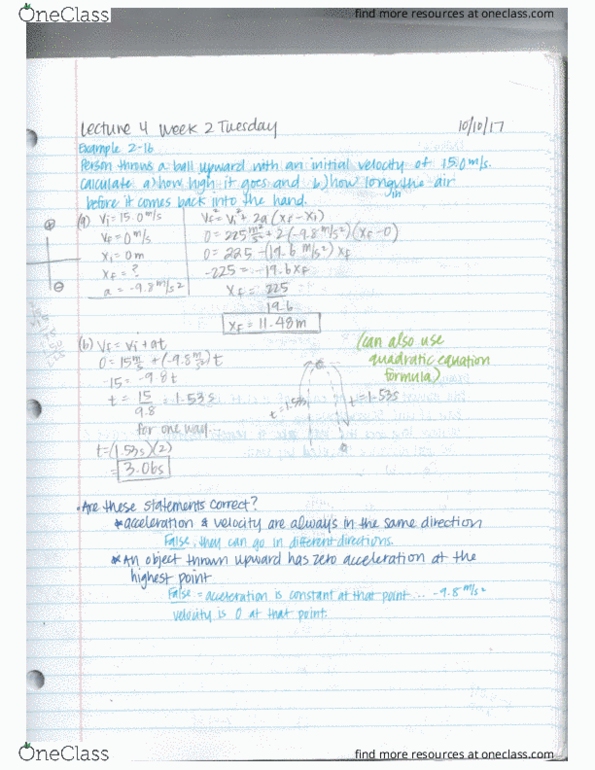 OneClass
find more resources at oneclass.com
Lecture 4 Week 2 Tuesday 10/10/17
Example 2-16
Person throws a ball upward with an initial velocity of 15.0 m/s.
Calculate a) how high it goes and b) how long the air
in
before it comes back into the hand.
(a) Vi = 15.0 m/s
Vf = 0 m/s
xi = 0 m
xf = ?
a = -9.8 m/s²
Vf² = Vi² + 2a (xf - xi)
0 = 225 m²/s² + 2(-9.8 m/s²)(xf - 0)
0 = 225 - (19.6 m/s²) xf
-225 = -19.6 xf
xf = 225/19.6
xf = 11.48 m
(b) Vf = Vi + at
0 = 15 m/s + (-9.8 m/s²) t
-15 = -9.8t
t = 15/9.8 = 1.53 s
for one way
t = (1.53s)(2)
= 3.06s
(can also use
quadratic equation
formula)
t = 1.53s
t = 1.53s
• Are these statements correct?
* acceleration & velocity are always in the same direction
False, they can go in different directions.
* An object thrown upward has zero acceleration at the
highest point
False = acceleration is constant at that point ... -9.8 m/s²
velocity is 0 at that point.
OneClass
find more resources at oneclass.com